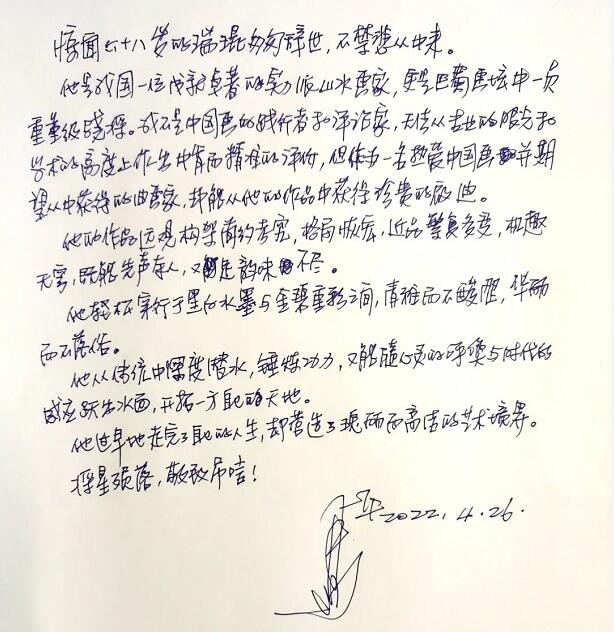 惊闻七十八岁的瑞琨匆匆辞世，不禁悲从中来。
他是我国一位成就卓著的实力派山水画家，更是巴蜀画坛中一员
重量级骁将。我不是中国画的践行者和评论家，无法从专业的眼光和
学术的高度上作出中肯而精准的评价，但作为一名热爱中国画并期
望从中获得的油画家，却能从他的作品中获得珍贵的启迪。
他的作品远观构架简约考究，格局恢宏，近品繁复多变，机趣
无穷，既能先声夺人，又能韵味不尽。
他轻松穿行于黑白水墨与金碧重彩之间，清雅而不酸腐，华丽
而不落俗。
他从传统中深度潜水，锤炼功力，又能随心灵的呼唤与时代的
感应跃出水面，开拓一方自己的天地。
他过早地走完了自己的人生，却营造了瑰丽而高洁的艺术境界。
将星殒落，敬致吊唁！
2022.4.26.